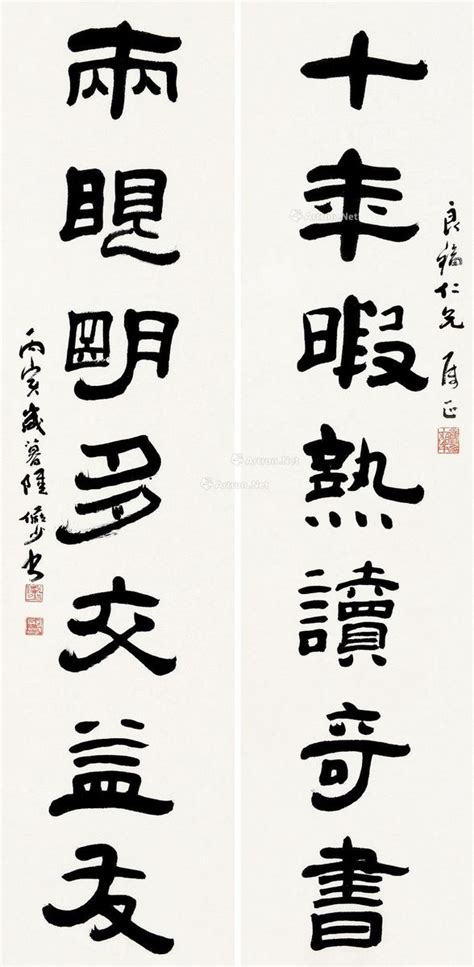 良福仁兄 属正
十年暇熟讀奇書
兩眼明多交益友
丙寅歲暮陸儼少書
Artron.Net
Artron.Net
Artron.Net